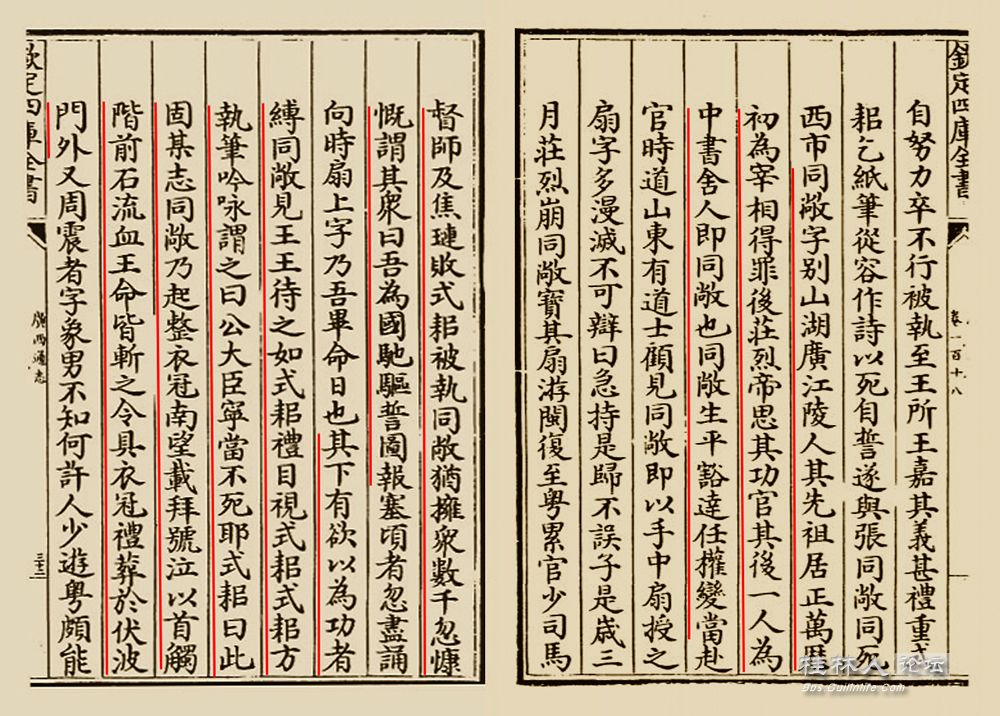 欽定四庫全書
卷一百十八
自努力卒不行被執至王所王嘉其義甚禮重式
耜乞紙筆從容作詩以死自誓遂與張同敞同死
西市同敞字别山湖廣江陵人其先祖居正萬曆
初為宰相得罪後莊烈帝思其功官其後一人為
中書舍人即同敞也同敞生平豁達任權變當赴
官時道山東有道士顧見同敞即以手中扇授之
扇字多漫滅不可辯曰急持是歸不誤子是歲三
月莊烈崩同敞寶其扇游閩復至粤累官少司馬
督師及焦璉敗式耜被執同敞猶擁衆數千忽慷
慨謂其衆曰吾為國馳驅誓圖報塞頃者忽盡誦
向時扇上字乃吾畢命日也其下有欲以為功者
縛同敞見王王待之如式耜禮目視式耜式耜方
執筆吟咏謂之曰公大臣寧當不死耶式耜曰此
固某志同敞乃起整衣冠南望載拜號泣以首觸
階前石流血王命皆斬之令具衣冠禮葬於伏波
門外又周震者字象男不知何許人少遊粤頗能
欽定四庫全書
廣西通志
三十二
桂林人论坛
Bbs.Guilinlife.Com